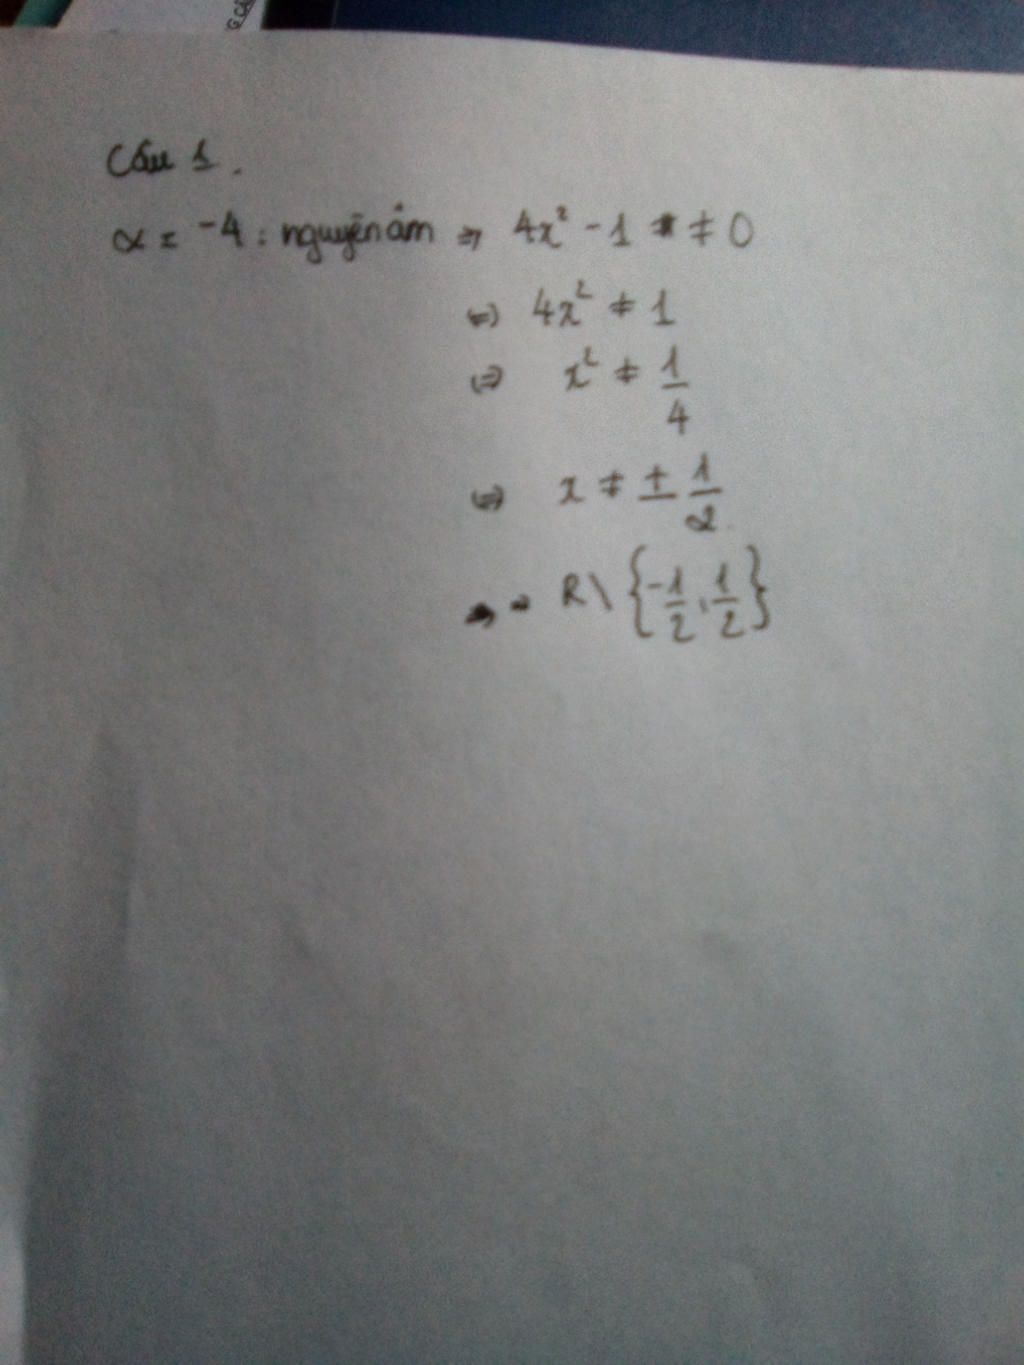 Câu 1.
α = -4 : nguyên âm ⇒ 4x² - 1 ≠ 0
⇔ 4x² ≠ 1
⇔ x² ≠ 1/4
⇔ x ≠ ± 1/2
⇒ R \ {-1/2, 1/2}